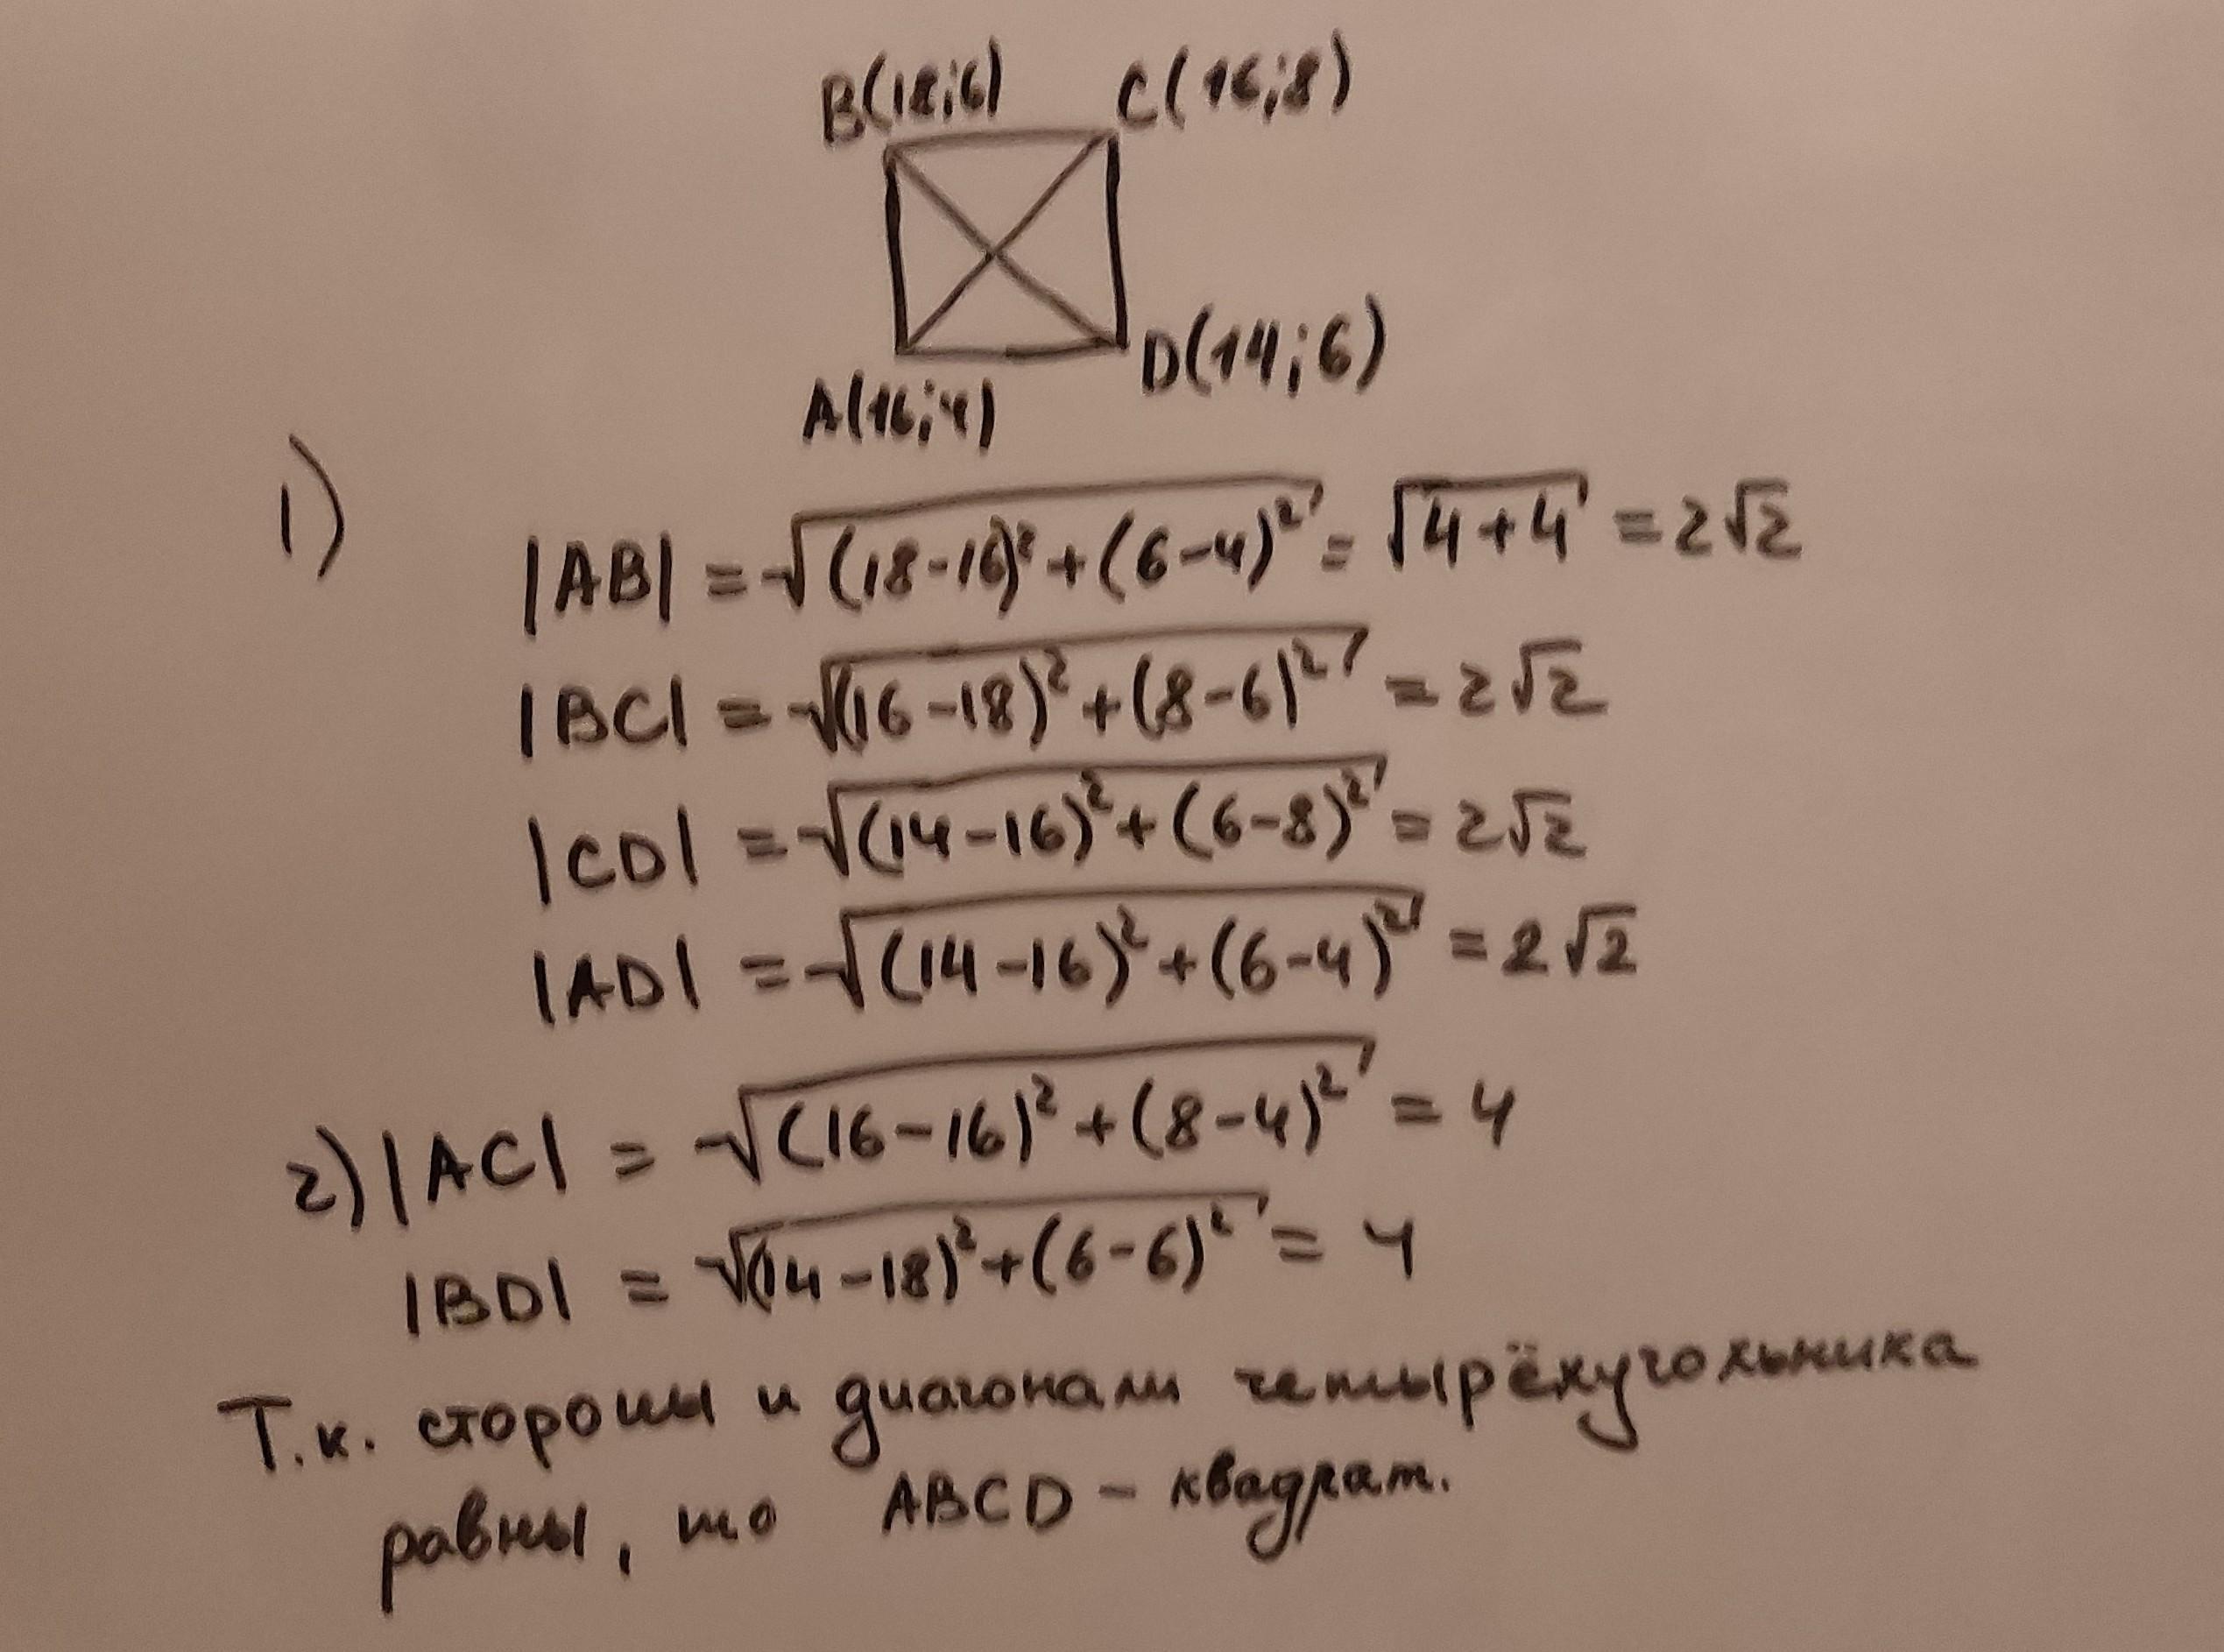 B(18;6) C(16;8)
A(16;4) D(14;6)
1)
|AB| = √((18-16)² + (6-4)²) = √(4+4) = 2√2
|BC| = √((16-18)² + (8-6)²) = 2√2
|CD| = √((14-16)² + (6-8)²) = 2√2
|AD| = √((14-16)² + (6-4)²) = 2√2
2) |AC| = √((16-16)² + (8-4)²) = 4
|BD| = √((14-18)² + (6-6)²) = 4
Т.к. стороны и диагонали четырёхугольника
равны, то ABCD - квадрат.